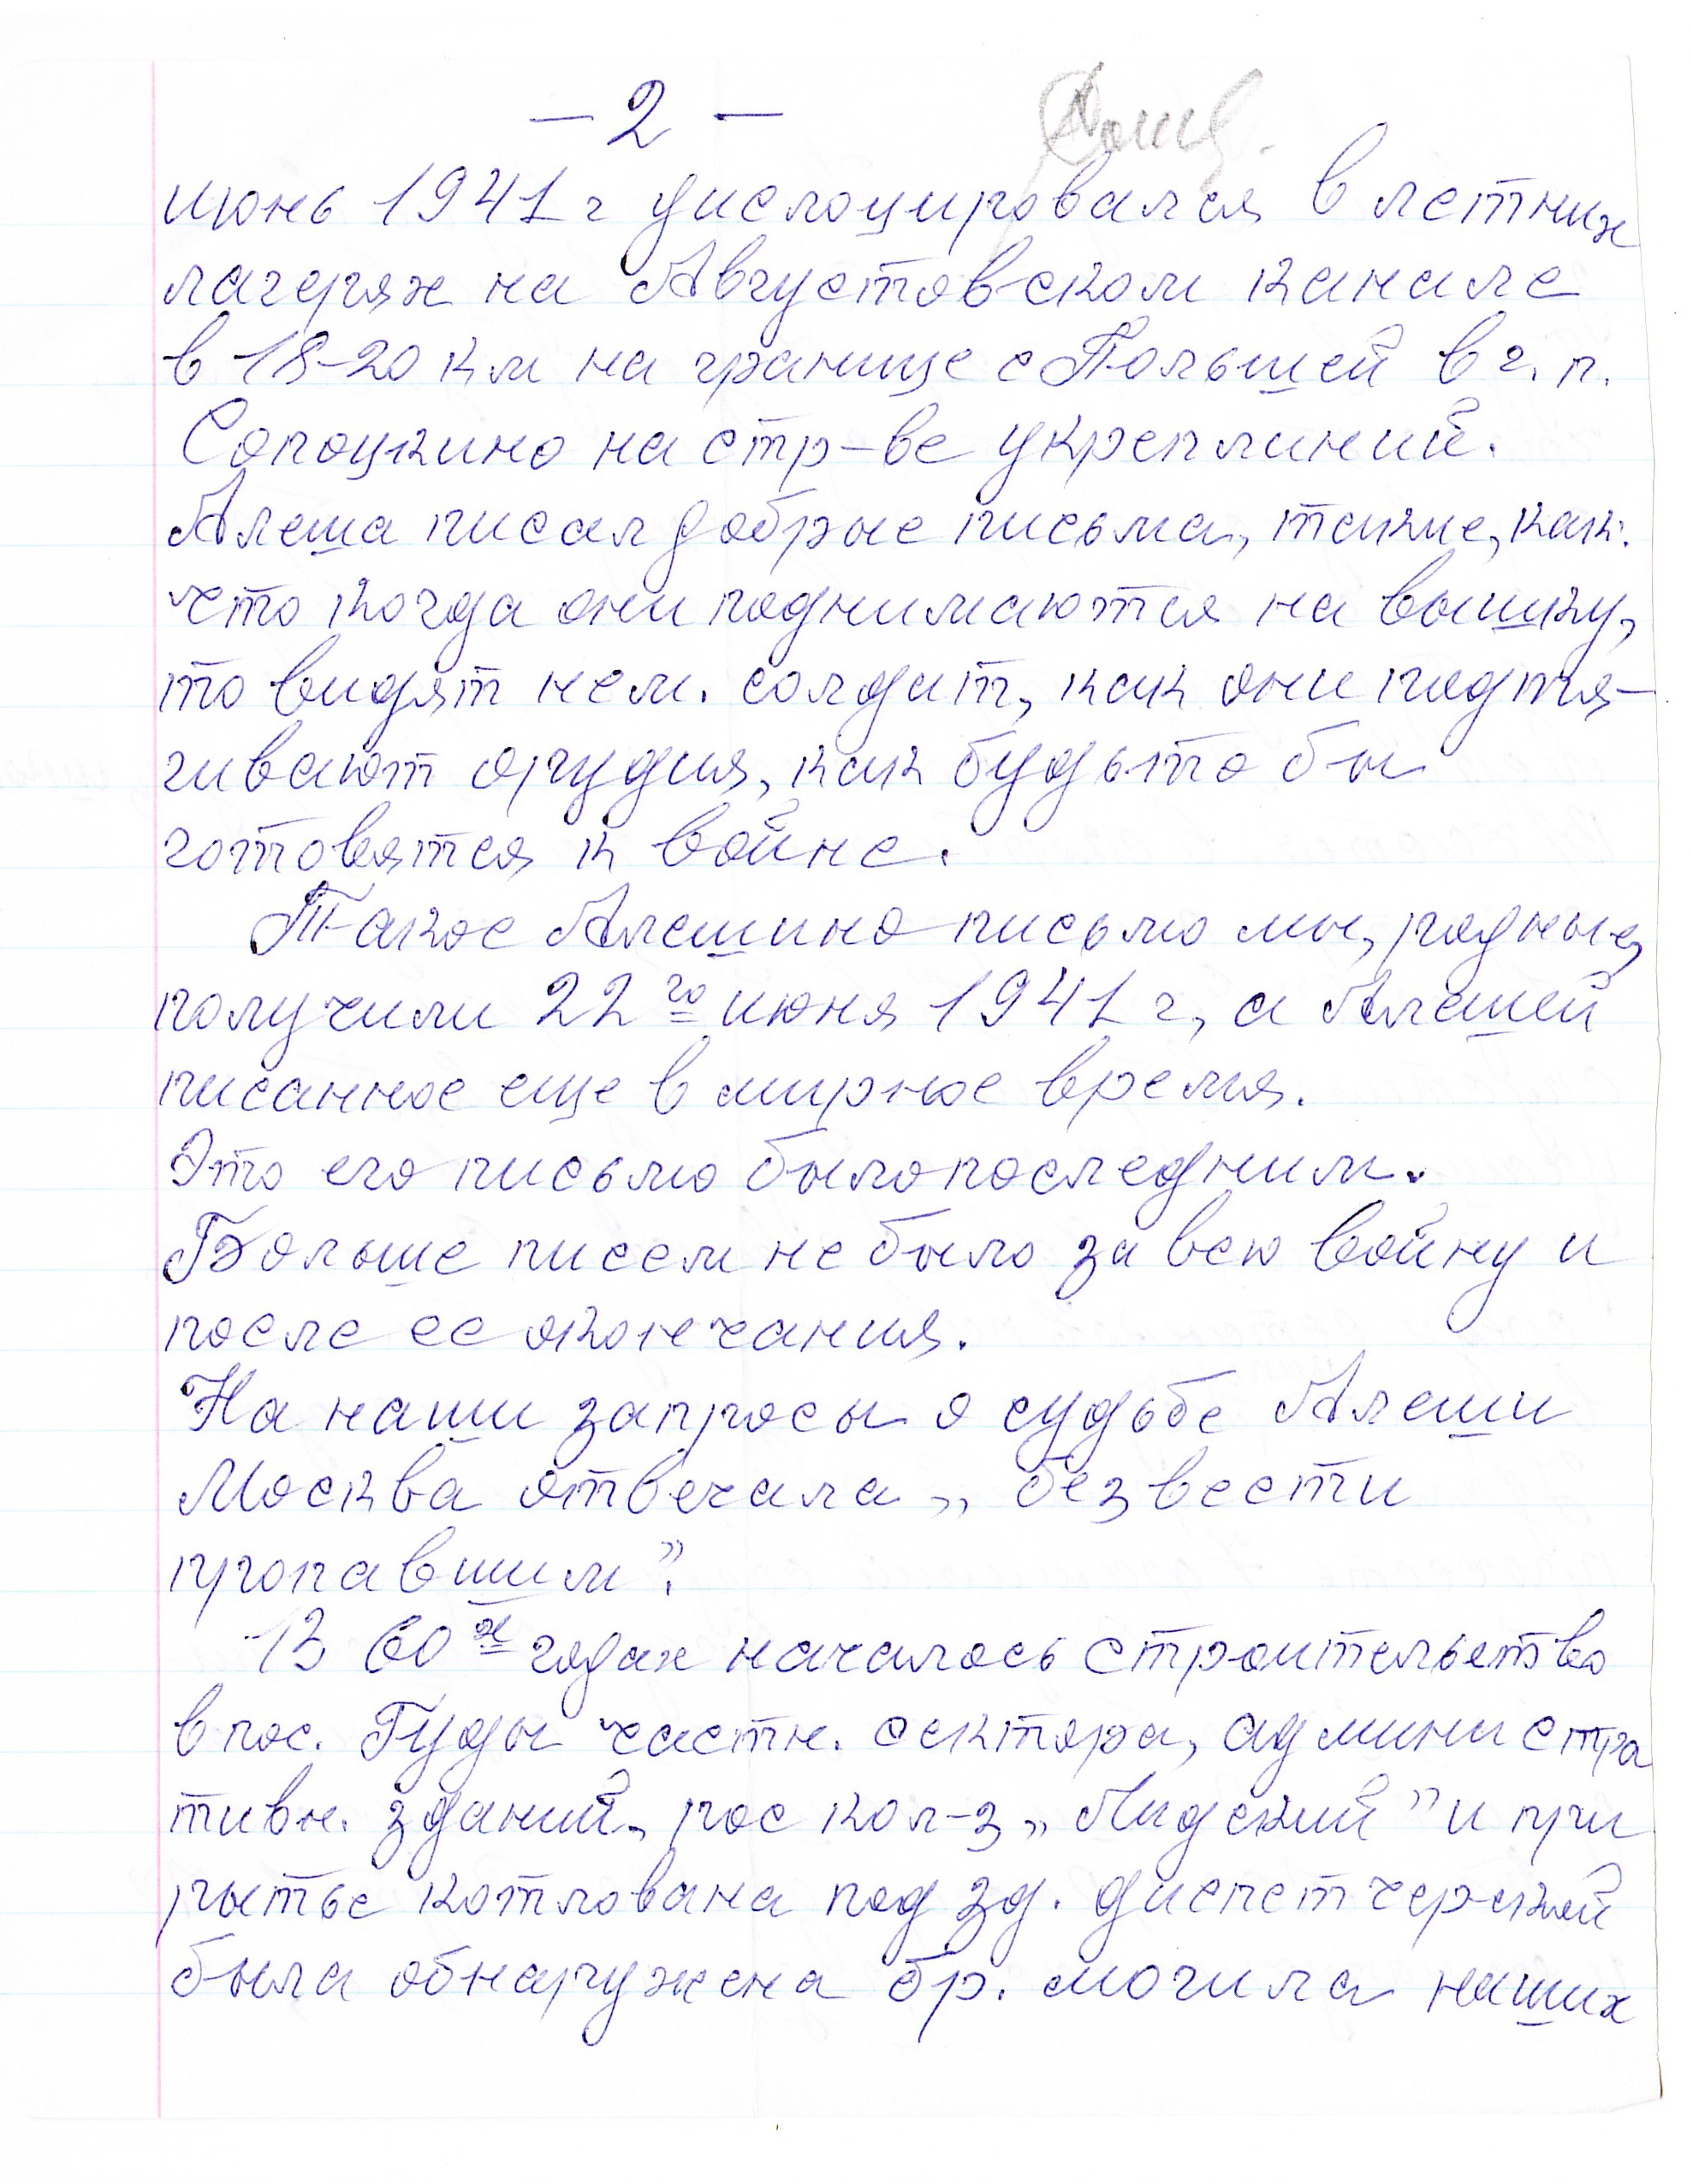 – 2 –
июнь 1941 г дислоцировался в летних
лагерях на Августовском канале
в 18-20 км на границе с Польшей в г. п.
Сопоцкино на стр-ве укреплиний.
Алеша писал добрые письма, такие, как:
что когда они поднимаются на вышку,
то видят нем. солдат, как они подтя-
гивают орудия, как будьто бы
готовятся к войне.
Такое Алешино письмо мы, родные,
получили 22го июня 1941 г, а Алешей
писанное еще в мирное время.
Это его письмо было последним.
Больше писем не было за всю войну и
после ее окончания.
На наши запросы о судьбе Алеши
Москва отвечала „ без вести
пропавшим”.
В 60х годах началось строительство
в пос. Гуды частн. сектора, администра
тивн. зданий, рос кол-з „Лидский” и при
рытье котлована под зд. диспетчерской
была обнаружена бр. могила наших